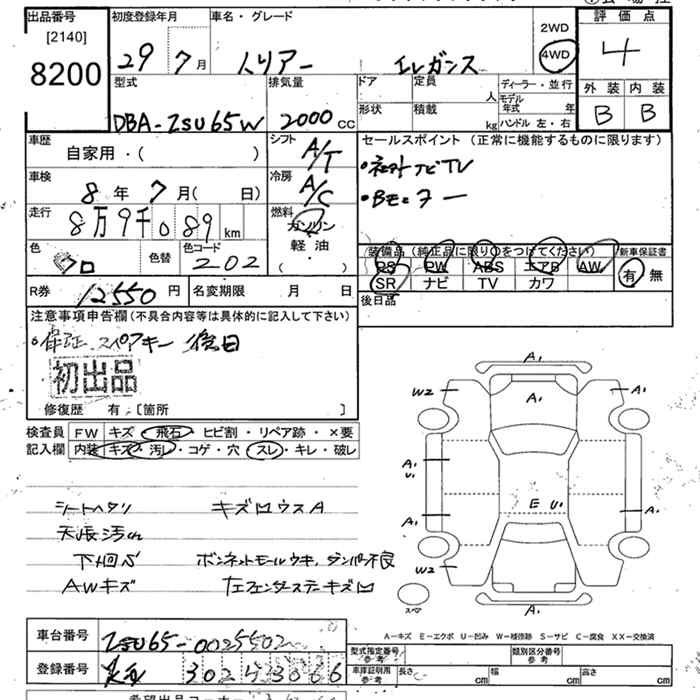 出品番号
[2140]
8200
初度登録年月
29 7 月
車名・グレード
ハリアー エレガンス
2WD
4WD
評価点
4
外装 内装
B B
型式
DBA-ZSU65W
排気量
2000 cc
ドア
形状
定員
人
積載
kg
ディーラー・並行
モデル年式 年
ハンドル 左・右
車歴
自家用・( )
シフト
A/T
セールスポイント (正常に機能するものに限ります)
・ナビTV
車検
8 年 7 月( 日)
冷房
A/C
走行
8万9千089 km
燃料
ガソリン
軽油
( )
色
クロ
色替
色コード
202
装備品 (純正品に限り○をつけてください)
新車保証書
PS PW ABS エアB AW
有 無
SR ナビ TV カワ
R券
12550 円
名変期限 月 日
後日品
注意事項申告欄 (不具合内容等は具体的に記入して下さい)
・保証、スペアキー 後日
初出品
修復歴 有 . [箇所 ]
検査員記入欄
FW キズ・飛石・ヒビ割・リペア跡・×要
内装 キズ・汚し・コゲ・穴・スレ・キレ・破レ
シートヘタリ キズロウスA
天張汚れ
下回サビ ボンネットモールウキ、ダンパー不良
AWキズ 左フェンダーステーキズ
A1
W2
A1
A1
A1
U1
E U1
A1
A1
W2
A1
スペア
A-キズ E-エクボ U-凹み W-補修跡 S-サビ C-腐食 XX-交換済
車台番号
ZSU65-0025502
登録番号
302 43066
型式指定番号 参考
類別区分番号 参考
車庫証明用 参考
長さ cm
幅 cm
高さ cm